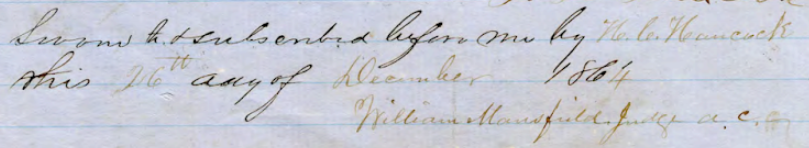 Sworn to & subscribed before me by H. C. Hancock
this 26th day of December 1864
William Mansfield Judge a. c.